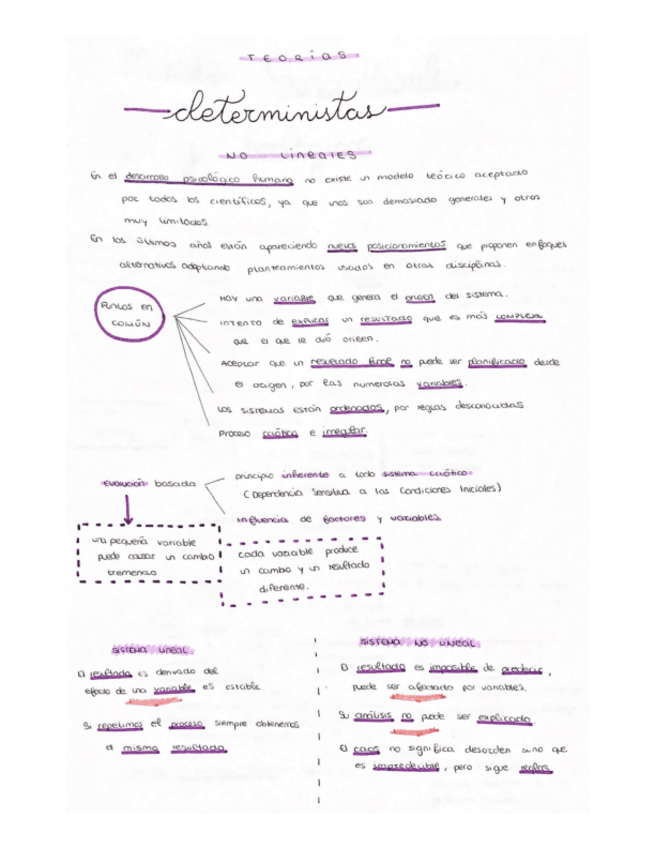 TEORÍAS
deterministas
NO LINEALES
En el desarrollo psicológico humano no existe un modelo teórico aceptado
por todos los científicos, ya que unos son demasiado generales y otros
muy limitados.
En los últimos años están apareciendo nuevos posicionamientos que proponen enfoques
alternativos adoptando planteamientos usados en otras disciplinas.
PUNTOS EN
COMÚN
HAY una variable que genera el origen del sistema.
INTENTO de explicar un resultado que es más complejo
que el que le dió origen.
ACEPTAR que un resultado final no puede ser planificado desde
el origen, por las numerosas variables.
Los sistemas están ordenados, por reglas desconocidas
Proceso caótico e irregular.
EVOLUCIÓN basada
principio inherente a todo sistema caótico
(Dependencia Sensitiva a las Condiciones Iniciales)
Influencia de factores y variables.
una pequeña variable
puede causar un cambio
tremendo
cada variable produce
un cambio y un resultado
diferente.
SISTEMA LINEAL
El resultado es derivado del
efecto de una variable es estable.
Si repetimos el proceso siempre obtenemos
el mismo resultado
SISTEMA NO LINEAL
El resultado es imposible de predecir,
puede ser afectado por variables.
Su análisis no puede ser explicado.
El caos no significa desorden sino que
es impredecible, pero sigue reglas.